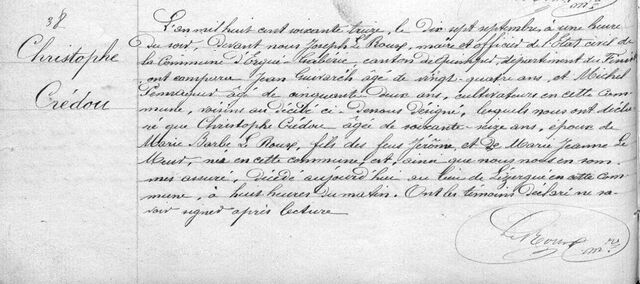 38
Christophe
Crédou
L'an mil huit cent soixante treize, le dix sept septembre, à une heure
du soir, devant nous Joseph Le Roux, maire et officier de l'Etat civil de
la Commune d'Ergué-Gabéric, canton de Quimper, département du Finist
ont comparu Jean Guivarch âgé de vingt-quatre ans, et Michel
âgé de cinquante deux ans, cultivateurs en cette com
mune, voisins au décédé ci-dessous désigné, lesquels nous ont décla
ré que Christophe Crédou âgée de soixante-seize ans, époux de
Marie Barbe Le Roux, fils des feus Jérôme, et de Marie Jeanne Le
Meur, né en cette commune, est, ainsi que nous nous en som
mes assuré, décédé aujourd'hui au lieu de Lézergué en cette com
mune, à huit heures du matin. Ont les témoins déclaré ne sa
voir signer après lecture
Le Roux
m.re